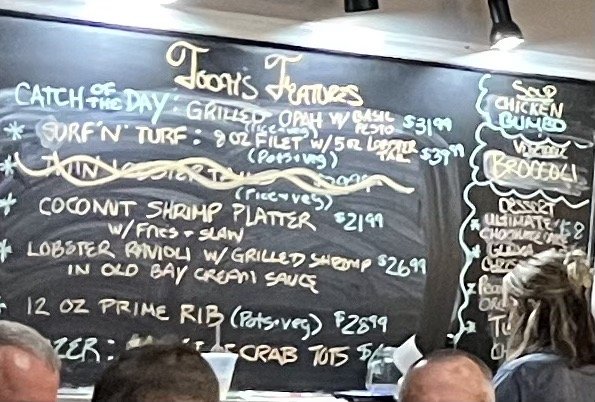 Today's Features
CATCH OF THE DAY: GRILLED OPAH W/ BASIL PESTO $31.99
(rice + veg)
* SURF 'N' TURF: 8 OZ FILET W/ 5 oz LOBSTER TAIL $39.99
(Pots + veg)
* TWIN LOBSTER
(rice + veg)
* COCONUT SHRIMP PLATTER $21.99
W/ FRIES + SLAW
* LOBSTER RAVIOLI W/ GRILLED SHRIMP $26.99
IN OLD BAY CREAM SAUCE
* 12 OZ PRIME RIB (Pots + veg) $28.99
CRAB TOTS
SOUP
CHICKEN
GUMBO
BROCCOLI
DESSERT
* ULTIMATE $8
CHOCOLATE